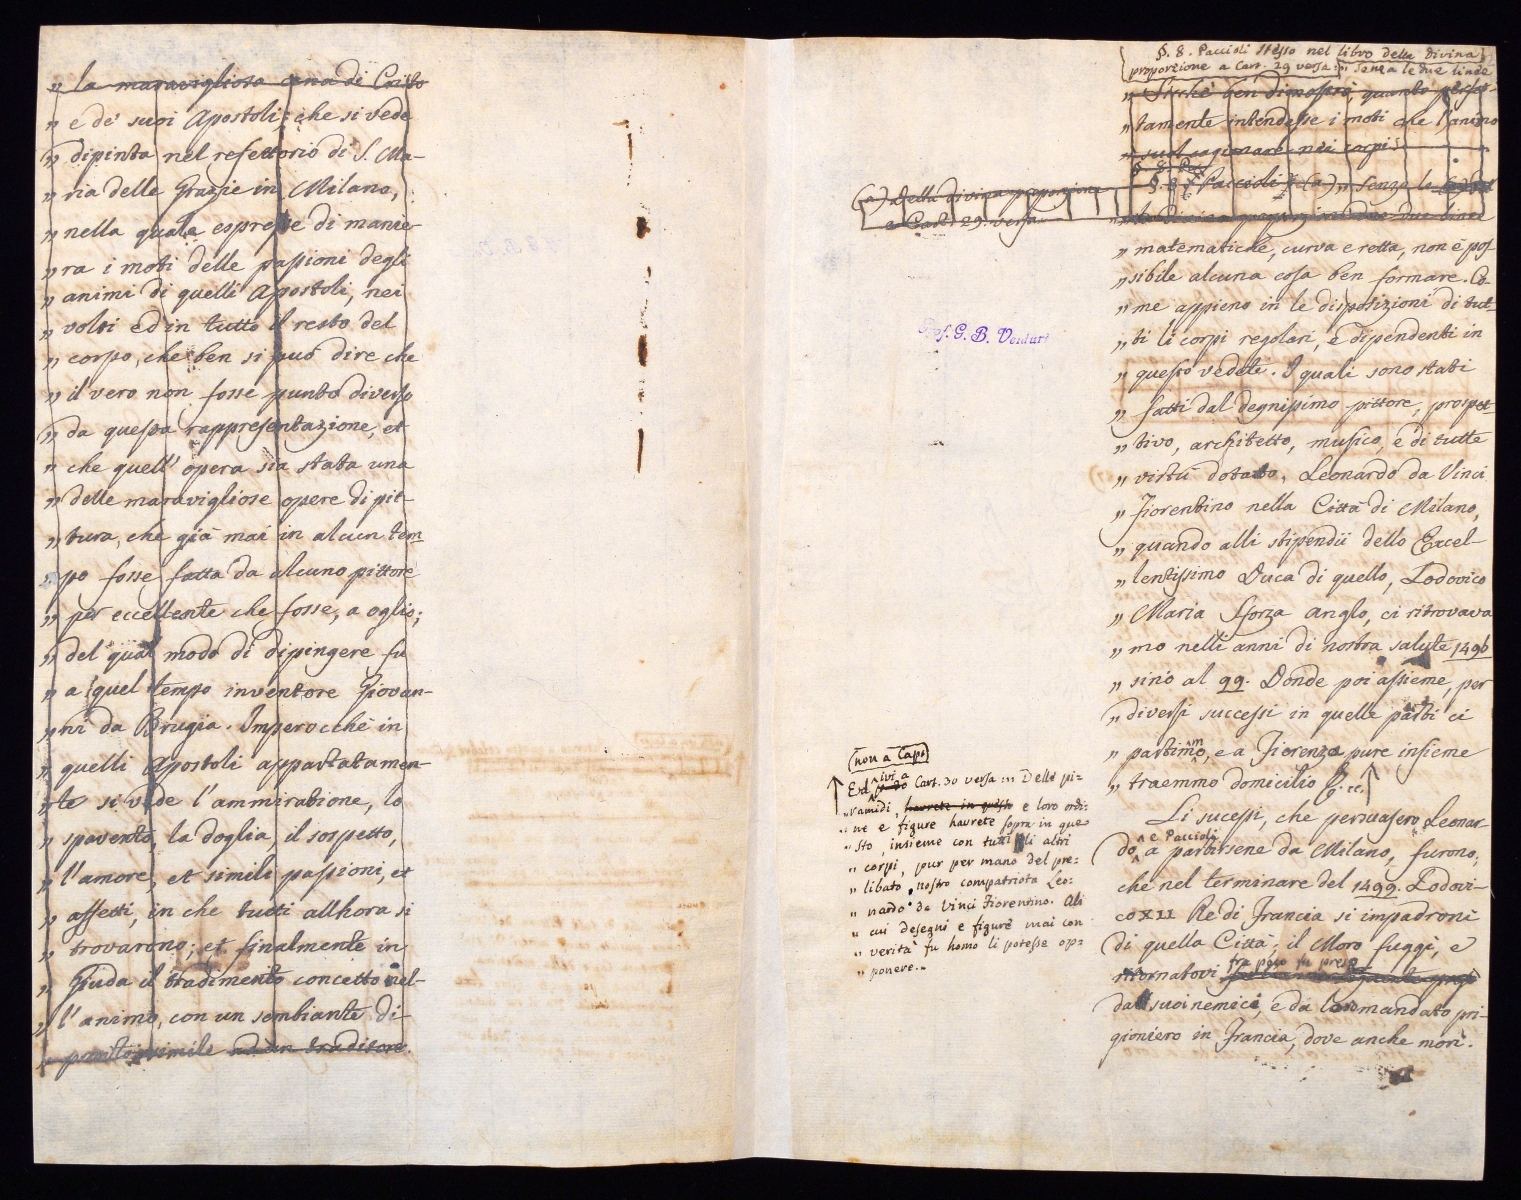 „ la maravigliosa cena di Cristo
„ e de' suoi Apostoli, che si vede
„ dipinta nel refettorio di S. Ma-
„ ria delle Grazie in Milano,
„ nella quale espresse di manie-
„ ra i moti delle passioni degli
„ animi di quelli Apostoli, nei
„ volti ed in tutto il resto del
„ corpo, che ben si può dire che
„ il vero non fosse punto diverso
„ da questa rappresentazione, et
„ che quell' opera sia stata una
„ delle maravigliose opere di pit-
„ tura, che già mai in alcun tem-
„ po fosse fatta da alcuno pittore
„ per eccellente che fosse, a oglio;
„ del qual modo di dipingere fu
„ a quel tempo inventore Giovan-
„ ni da Brugia. Imperocchè in
„ quelli Apostoli appartatamen-
„ te si vede l'ammiratione, lo
„ spavento, la doglia, il sospetto,
„ l'amore, et simili passioni, et
„ affetti, in che tutti allhora si
„ trovarono; et finalmente in
„ Giuda il tradimento concetto nel-
„ l'animo, con un sembiante di-
„ simile ad un traditore.
(a) della divina proporzione
a Cart. 29. versa
Prof. G. B. Venturi
non a Capo
Ed ivi a Cart. 30 versa „ Delle pi-
„ ramidi, havrete in questo e loro ordi:
„ ne e figure havrete sopra in que
„ sto, insieme con tutti gli altri
„ corpi, pur per mano del pre:
„ libato nostro compatriota Leo:
„ nardo da Vinci Fiorentino. Ali
„ cui desegni e figure mai con
„ verità fu homo li potesse op:
„ ponere.„
§. 8. Paccioli stesso nel libro della divina
proporzione a Cart. 29 versa: „ Senza le due linee
„ Sicchè ben dimostrò, quanto perfet-
„ tamente intendesse i moti che l'animo
„ suol cagionare nei corpi.
§. 8. Paccioli (a) „ Senza le
due linee
„ matematiche, curva e retta, non è pos
„ sibile alcuna cosa ben formare. Co-
„ me appieno in le disposizioni di tut-
„ ti li corpi regolari, e dipendenti in
„ questo vedete. I quali sono stati
„ fatti dal degnissimo pittore, prospet-
„ tivo, architetto, musico, e di tutte
„ virtù dotato, Leonardo da Vinci
„ Fiorentino nella Città di Milano,
„ quando alli stipendii dello Excel-
„ lentissimo Duca di quello, Lodovico
„ Maria Sforza Anglo, ci ritrovava
„ mo nelli anni di nostra salute 1496
„ sino al 99. Donde poi assieme, per
„ diversi successi in quelle parti ci
„ partimmo, e a Fiorenza pure insieme
„ traemmo domicilio &. cc.
Li sucessi, che persuasero Leonar-
do e Paccioli a partirsene da Milano, furono,
che nel terminare del 1499. Lodovi-
co XII Re di Francia si impadronì
di quella Città; il Moro fuggì, e
ritornatovi fra poco fu preso
da suoi nemici, e da loro mandato pri-
gioniero in Francia, dove anche morì.